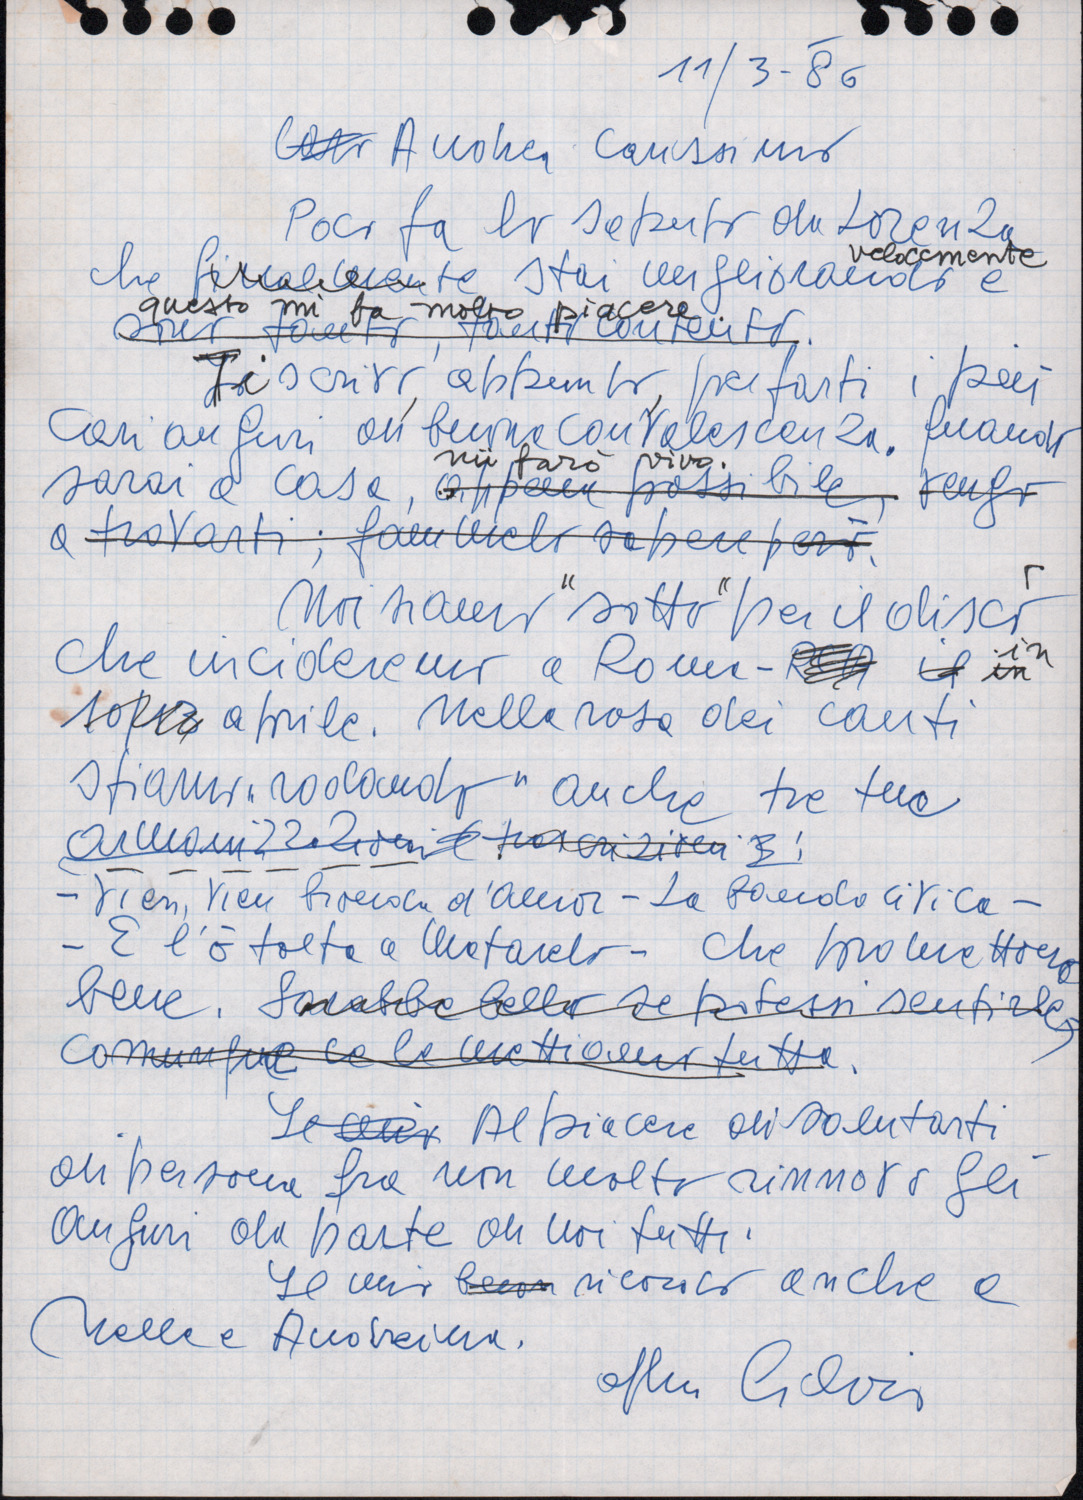 11/3-86
Caro Andrea carissimo
Poco fa ho saputo da Lorenza
velocemente
che finalmente stai migliorando e
questo mi fa molto piacere
sono tanto, tanto contento.
Ti scrivo, appunto, per farti i più
cari auguri di buona convalescenza. Quando
mi farò vivo.
sarai a casa, appena possibile, vengo
a trovarti; fammelo sapere però.
Noi siamo "sotto" per il disco
che incideremo a Roma - RCA il in in
aprile. Nella rosa dei canti
stiamo "rodando" anche tre tue
armonizzazioni e trascrizioni:
- Vien, vien bionda d'amor - La banda civica -
- E l'ò tolta a Matarelo - che promettono
bene. Sarebbe bello se potessi sentirle,
comunque ce la mettiamo tutta.
Il mio Al piacere di salutarti
di persona fra non molto rinnovo gli
auguri da parte di noi tutti.
Il mio buon ricordo anche a
Nella e Andreina.